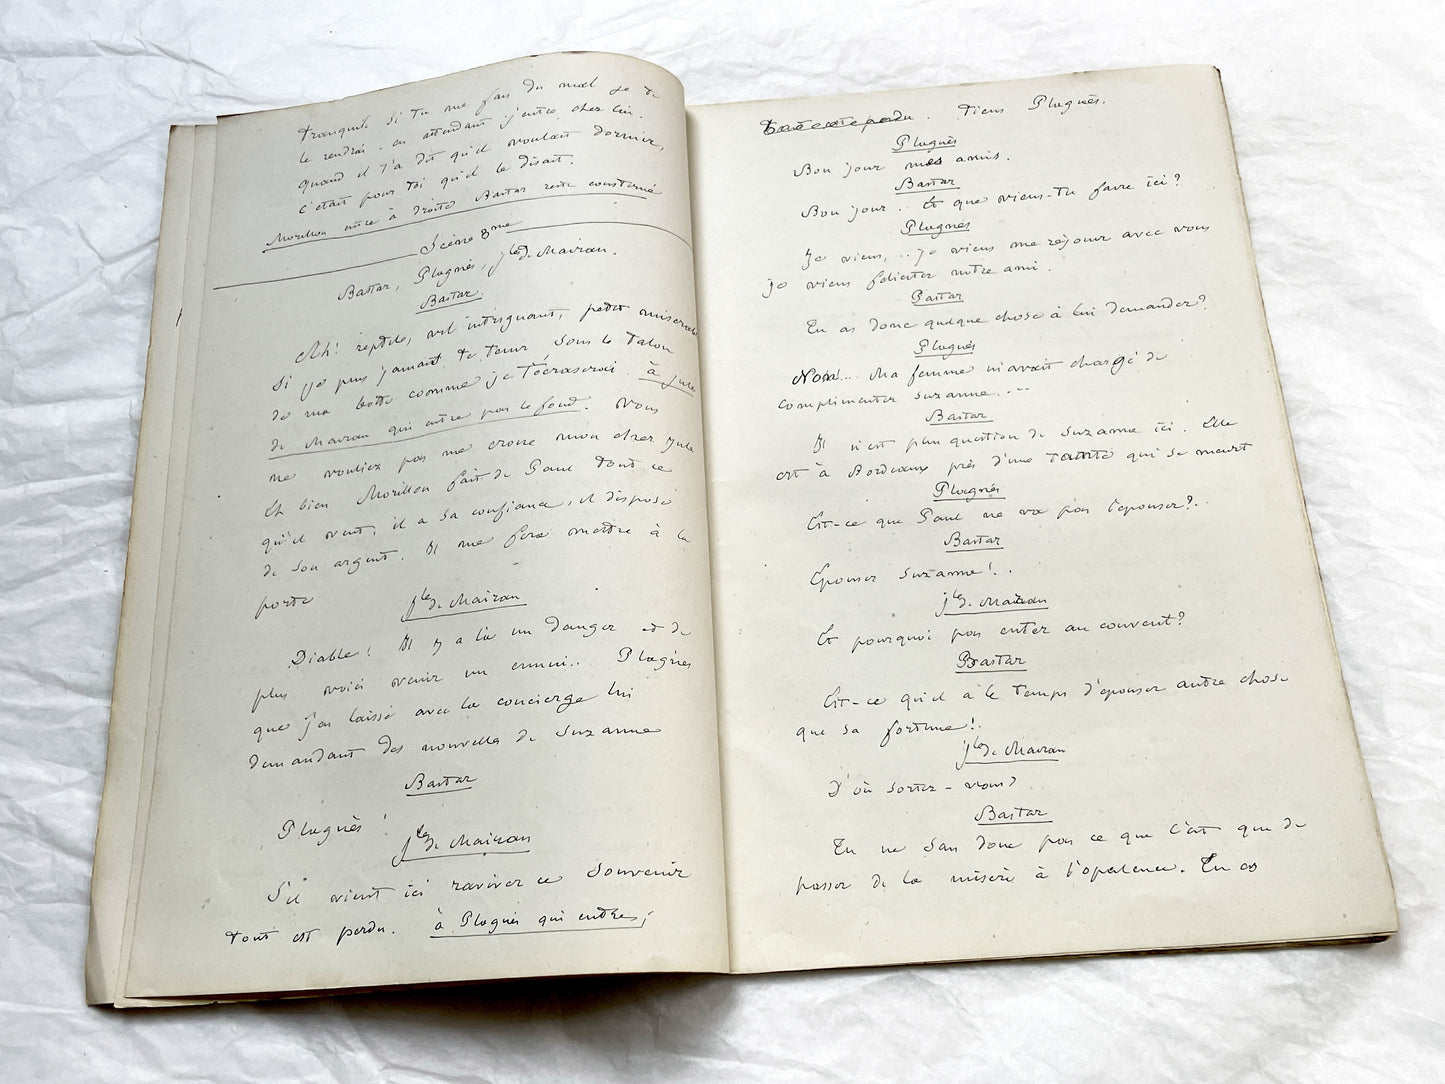 tranquil si tu me fais du mal je te
le rendrai. en attendant j'entre chez lui.
Quand il t'a dit qu'il voulait dormir,
c'était pour toi qu'il le disait.
Morillon entre à droite Bastar reste consterné
Scène 8me
Bastar, Plugnès, jles de Mairan.
Bastar.
Ah! reptile, vil intrigant, petit misérable
Si je puis jamais te tenir sous le talon
de ma botte comme je t'écraserai. à jules
de Mairan qui entre par le fond. Vous
ne vouliez pas me croire mon cher jules
Et bien Morillon fait de Paul tout ce
qu'il veut, il a sa confiance, il dispose
de son argent. Il me fera mettre à la
porte
jles de Mairan
Diable! Il y a là un danger et de
plus voici venir un ennui.. Plugnès
que j'ai laissé avec la concierge lui
demandant des nouvelles de Suzanne
Bastar
Plugnès!
jles de Mairan
S'il vient ici raviver ce souvenir
tout est perdu. à Plugnès qui entre;
Tout est perdu. Tiens Plugnès.
Plugnès
Bon jour mes amis.
Bastar
Bon jour .. Et que viens-tu faire ici?
Plugnès
Je viens, .. je viens me réjouir avec vous
je viens féliciter notre ami.
Bastar
Tu as donc quelque chose à lui demander?
Plugnès
Non!... Ma femme m'avait chargé de
complimenter Suzanne....
Bastar
Il n'est plus question de Suzanne ici. Elle
est à Bordeaux près d'une tante qui se meurt
Plugnès
Est-ce que Paul ne va pas l'épouser?.
Bastar
Epouser Suzanne!..
jles de Mairan
Et pourquoi pas entrer au couvent?
Bastar
Est-ce qu'il a le temps d'épouser autre chose
que sa fortune!.
jles de Mairan
D'où sortez-vous?
Bastar
Tu ne sais donc pas ce que c'est que de
passer de la misère à l'opulence. Tu as